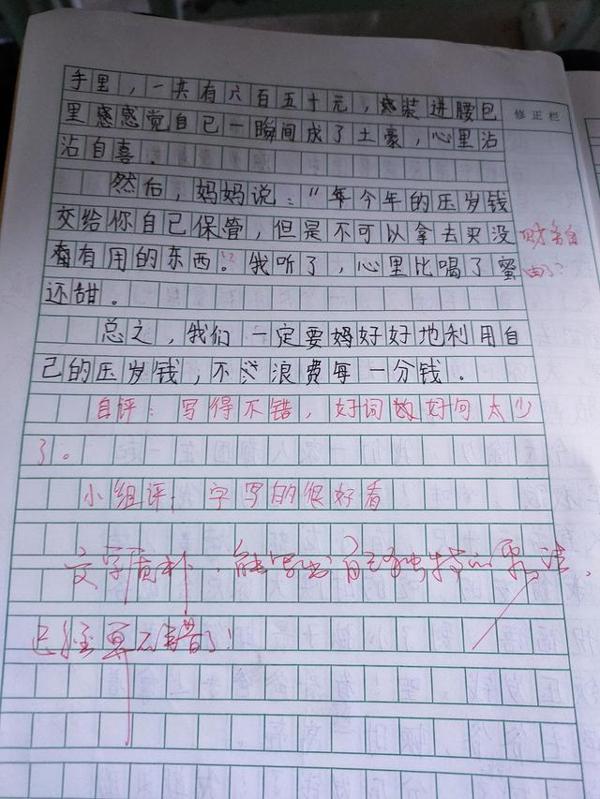 手里，一共有六百五十元，装进腰包
里感觉自己一瞬间成了土豪，心里沾
修正栏
沾自喜．
然后，妈妈说："今年的压岁钱
交给你自己保管，但是不可以拿去买没
财务自
有用的东西。"我听了，心里比喝了蜜
由了？
还甜。
总之，我们一定要好好地利用自
己的压岁钱，不浪费每一分钱．
自评：写得不错，好词好句太少
了。
小组评：字写的很好看
文字质朴．能写出自己独特的
已经不错了！